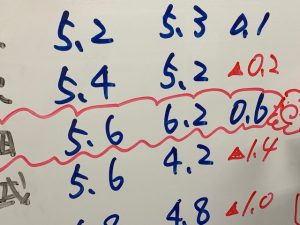 5.2 5.3 0.1
5.4 5.2 ▲0.2
5.6 6.2 0.6
5.6 4.2 ▲1.4
4.8 ▲1.0